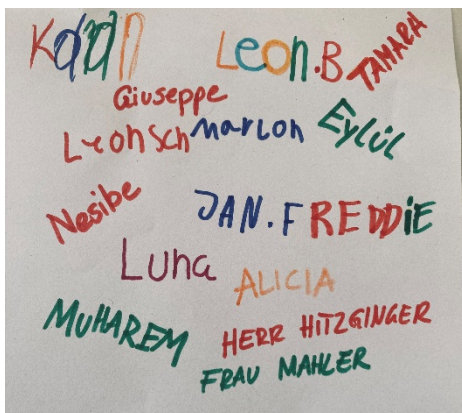 Kaan
Leon.B
TAMARA
Giuseppe
Leonsch
Marlon
Eylül
Nesibe
JAN.F
REDDiE
Luna
ALICIA
MUHAREM
HERR HITZGINGER
FRAU MAHLER